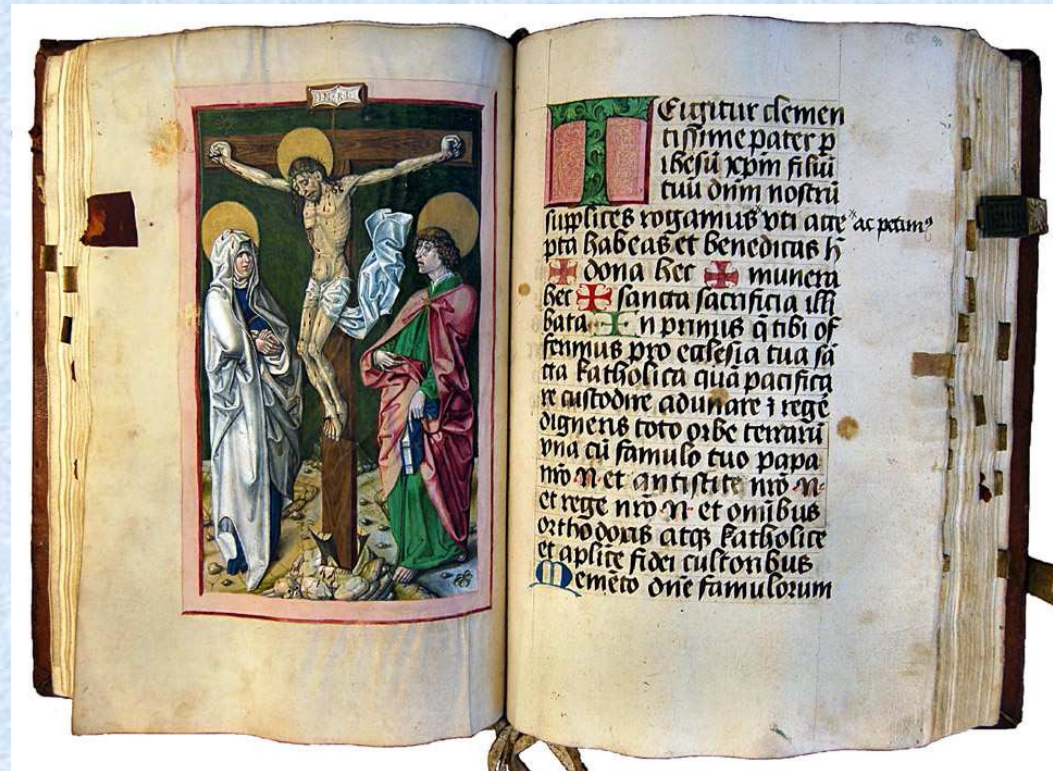 I·N·R·I
TE igitur clemen
tissime pater p
ihesū xp̄m filiū
tuū dn̄m nostrū
supplices rogamus ˣ vti acce
ˣ ac petimꝰ
pta habeas et benedicas h̄
✠ dona hec ✠ munera
hec ✠ sancta sacrificia illi
bata In primis q̄ tibi of
ferimus pro ecclesia tua sā
cta katholica quā pacifica
re custodire adunare ⁊ regē
digneris toto orbe terrarū
vna cū famulo tuo papa
nr̄o ·N· et antistite nr̄o ·N·
et rege nr̄o ·N· et om̄ibus
orthodoxis atqꝫ katholice
et ap̄lice fidei cultoribus
Memēto dn̄e famulorum